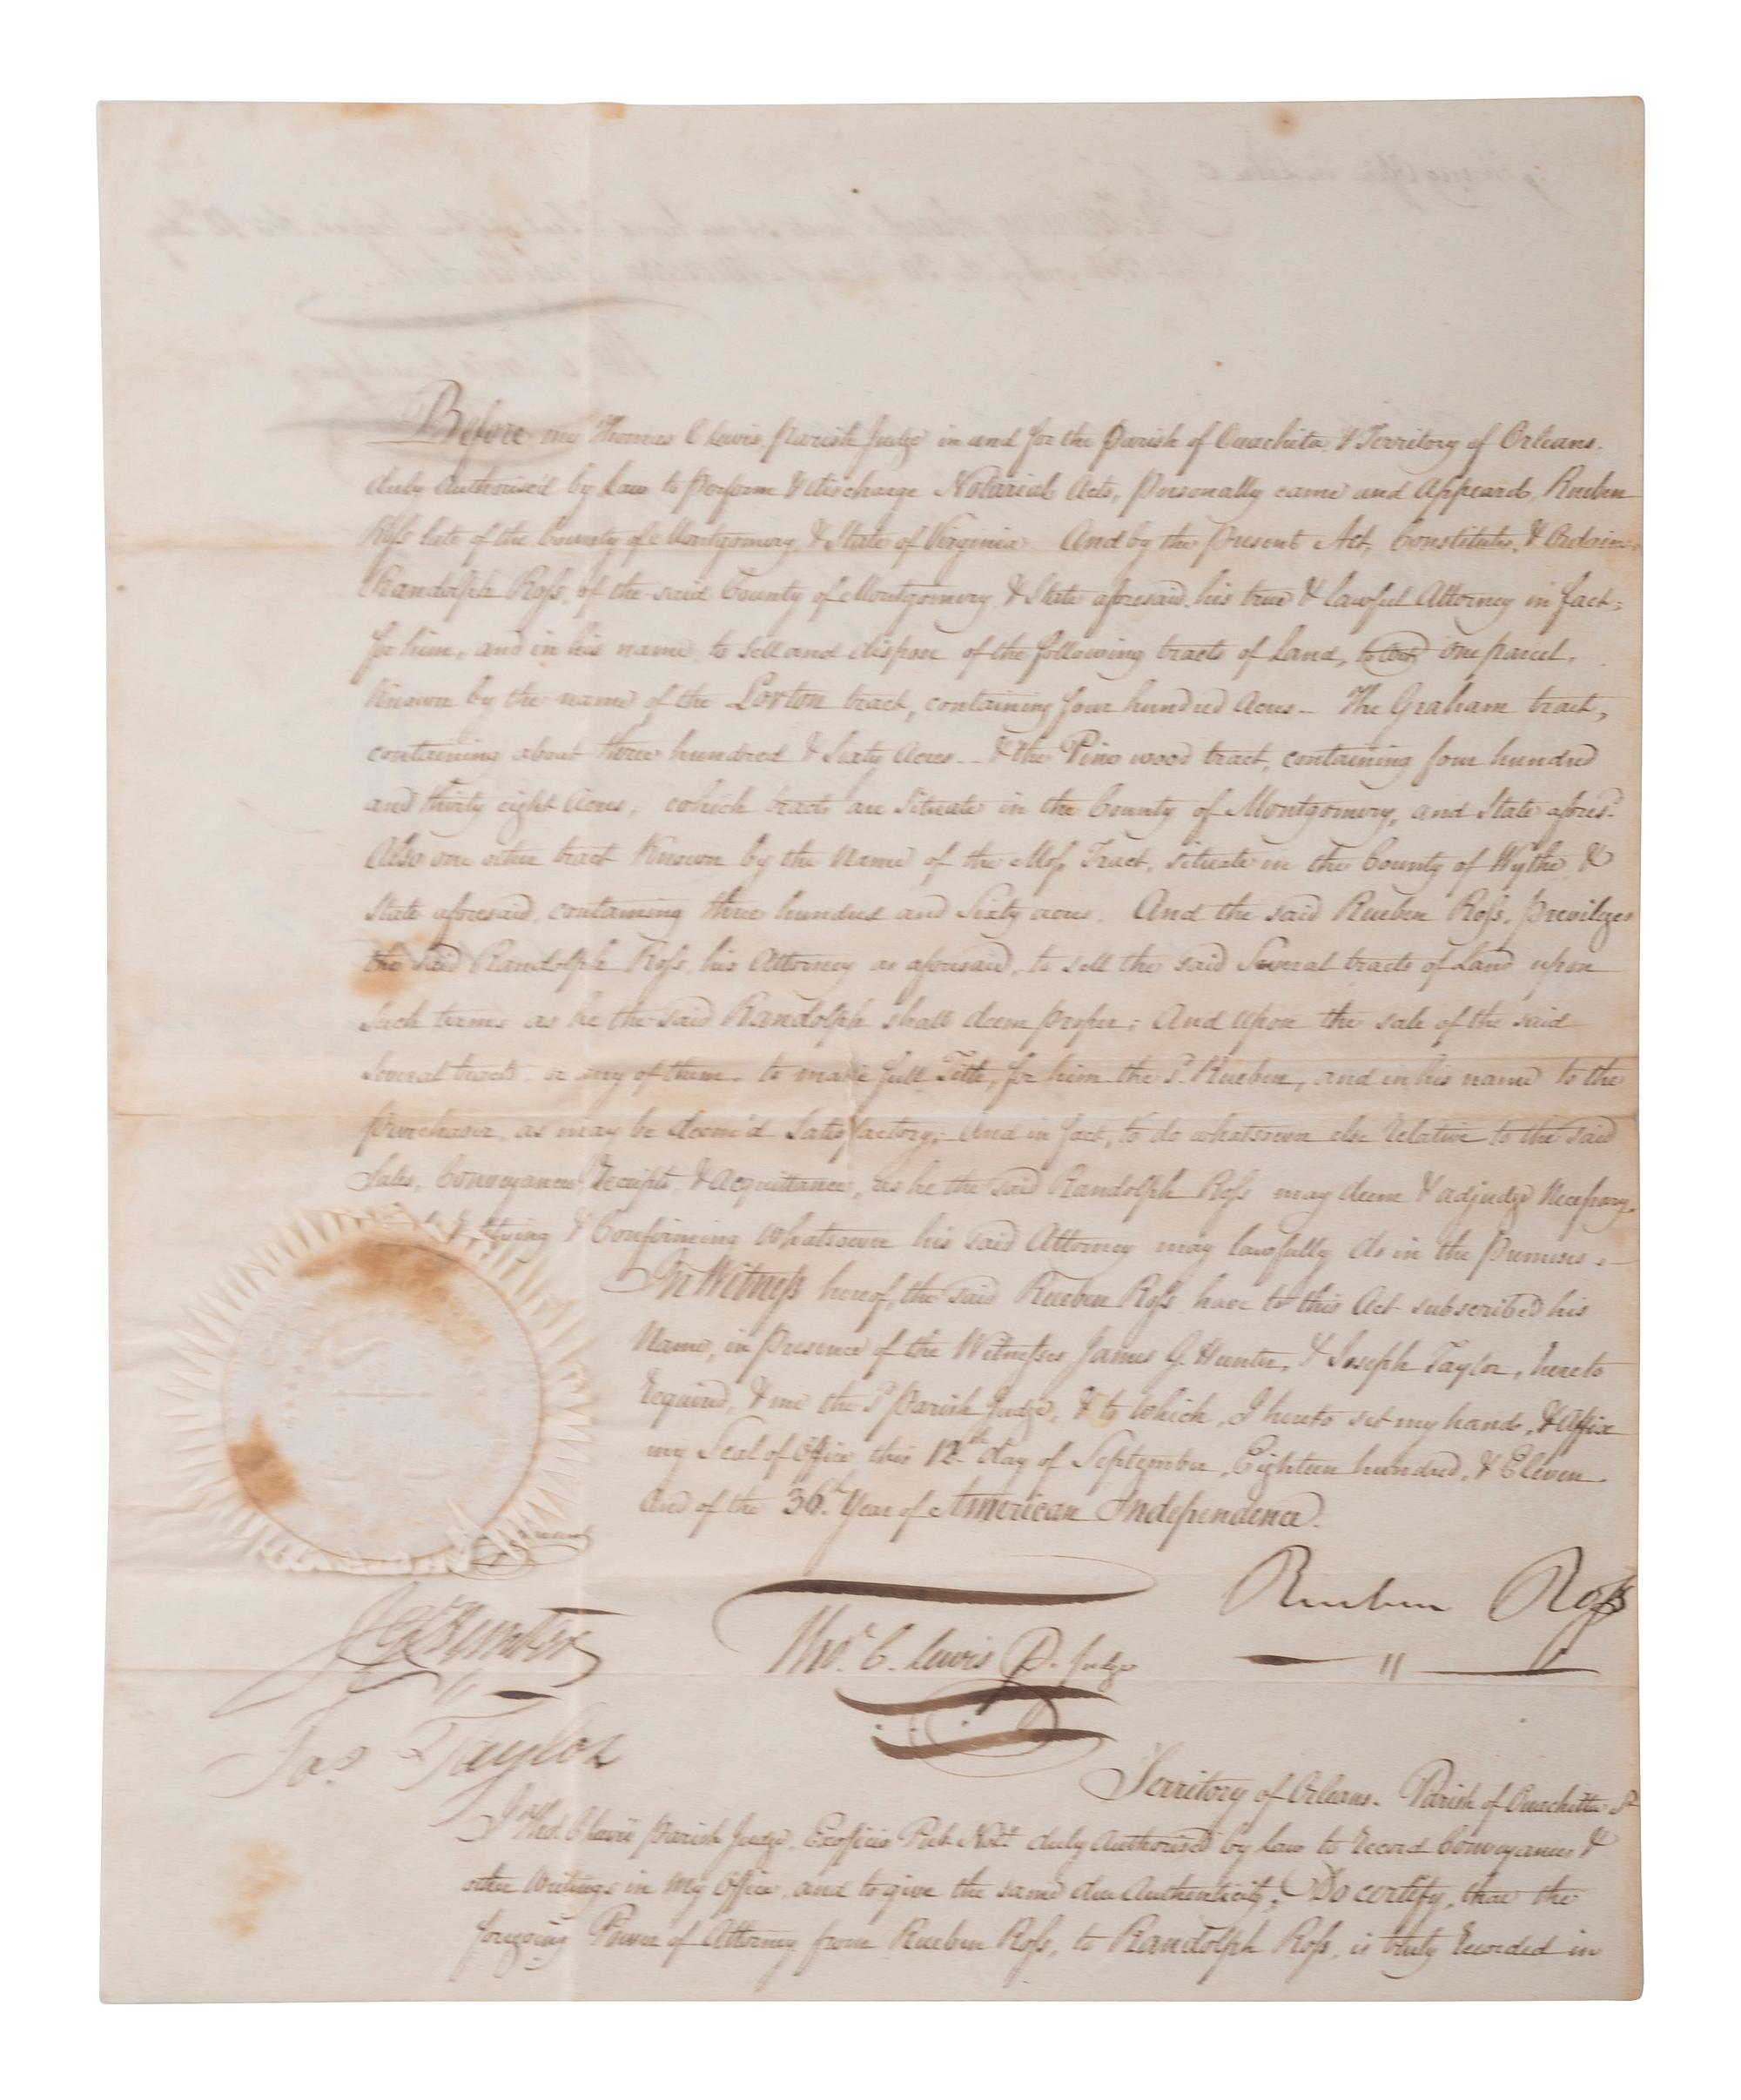 Before me Thomas C Lewis, parish Judge in and for the parish of Ouachita, & Territory of Orleans.
duly Authoris'd by Law to perform & discharge Notarial Acts, personally came and Appeard, Rueben
Roſs late of the County of Montgomery & State of Virginia. And by the present Act, Constitutes, & Ordains
Randolph Roſs, of the said County of Montgomery & State aforesaid, his true & lawful Attorney in fact;
for him, and in his name to sell and dispose of the following tracts of Land, to wit, one parcel,
Known by the name of the Lorton tract, containing four hundred Acres – The Graham tract,
containing about three hundred & Sixty Acres – & the Pine wood tract, containing four hundred
and thirty eight Acres, which tracts are Situate in the County of Montgomery, and State afores.d
Also one other tract Known by the Name of the Moſs Tract, situate in the County of Wythe &
State aforesaid, containing three hundred and Sixty acres. And the said Rueben Roſs, previleges
the said Randolph Roſs, his Attorney as aforesaid, to sell the said Several tracts of Land upon
Such terms as he the said Randolph shall deem proper; And upon the sale of the said
Several tracts, or any of them, to make full Title, for him the s.d Rueben, and in his name to the
purchaser, as may be deem'd Satisfactory; And in fact, to do whatsoever else relative to the said
Sales, Conveyances, Receipts & Acquittances, as he the said Randolph Roſs may deem & adjudge Neceſsary,
& Confirming Whatsoever his said Attorney may lawfully do in the premises.
In Witneſs hereof, the said Rueben Roſs have to this Act subscribed his
Name, in presence of the Witneſses James G. Hunter, & Joseph Taylor, hereto
required, & me the s.d parish Judge, & to which, I hereto set my hand, & Affix
my Seal of Office this 12th day of September, Eighteen hundred, & Eleven
And of the 36th Year of American Independence.
Rueben Roſs
JG Hunter
Tho.s C. Lewis P. Judge
Jos Taylor
Territory of Orleans. Parish of Ouachitta
I Tho.s C Lewis parish Judge, Exofficio Pub. Not.y duly Authorised by law to record Conveyances &
other Writings in My Office, and to give the same due Authenticity; Do certify, that the
foregoing Power of Attorney from Rueben Roſs, to Randolph Roſs, is truly recorded in